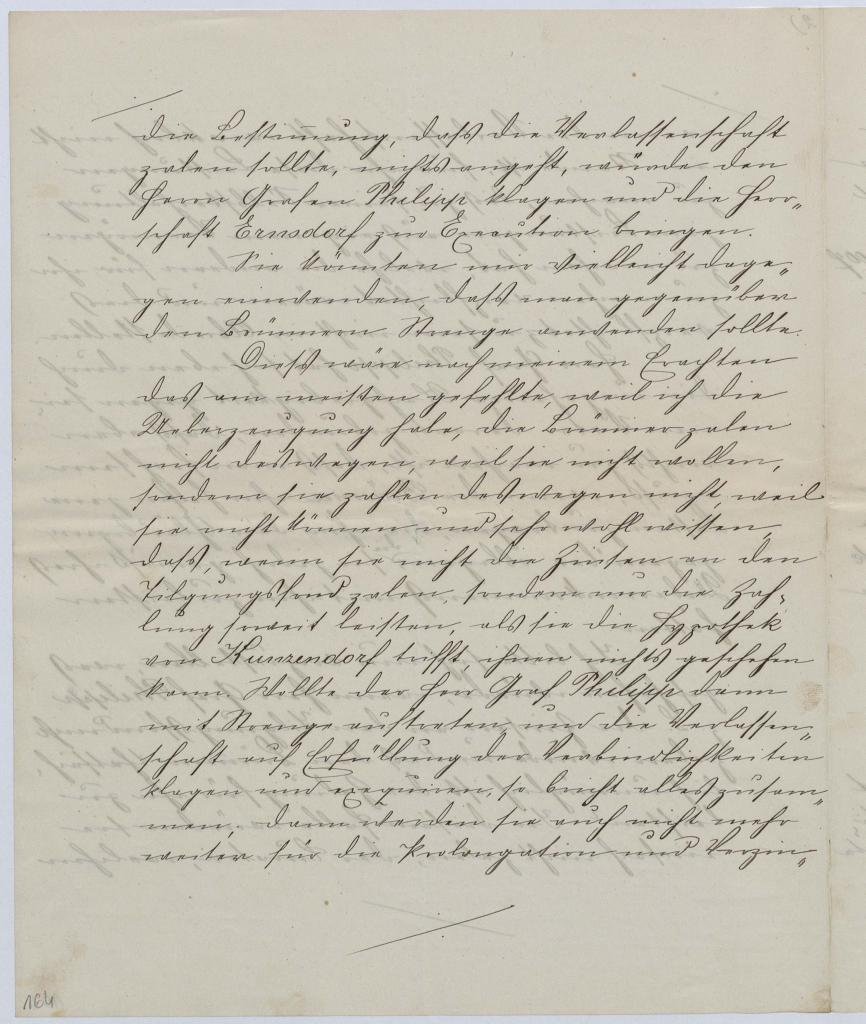 die Bestimmung, dass die Verlassenschaft
zalen sollte, nichts angeht, würde den
Herrn Grafen Philipp klagen und die Herr„
schaft Ernsdorf zur Execution bringen.
Sie könnten mir vielleicht dage„
gen einwenden, dass man gegenüber
den Brünnern Strenge anwenden sollte.
Diess wäre nach meinem Erachten
das am meisten gefehlte, weil ich die
Ueberzeugung habe, die Brünner zalen
nicht desswegen, weil sie nicht wollen,
sondern sie zahlen desswegen nicht, weil
sie nicht können und sehr wohl wissen,
dass, wenn sie nicht die Zinsen an den
Tilgungsfond zalen, sondern nur die Zah„
lung soweit leisten, als sie die Hypothek
von Kunzendorf trifft, ihnen nichts geschehen
kann. Wollte der Herr Graf Philipp dann
mit Strenge auftreten, und die Verlassen„
schaft auf Erfüllung der Verbindlichkeiten
klagen und exequiren, so bricht alles zusam„
men, dann werden sie auch nicht mehr
weiter für die Prolongation und Verzin„
164